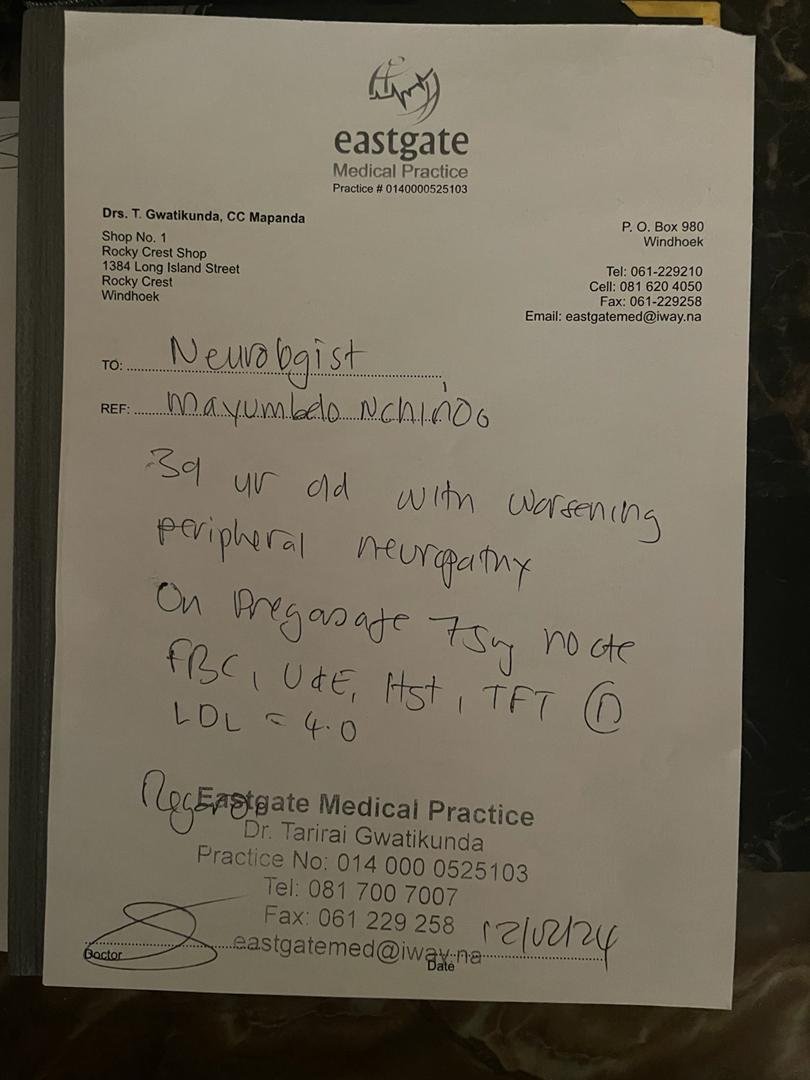 eastgate
Medical Practice
Practice # 0140000525103
Drs. T. Gwatikunda, CC Mapanda
Shop No. 1
Rocky Crest Shop
1384 Long Island Street
Rocky Crest
Windhoek
P. O. Box 980
Windhoek
Tel: 061-229210
Cell: 081 620 4050
Fax: 061-229258
Email: eastgatemed@iway.na
TO: Neurologist
REF: Mayumbelo
39 yr old with worsening
peripheral neuropathy
On 75mg nocte
FBC, U&E, TFT (N)
LDL = 4.0
Regards
Eastgate Medical Practice
Dr. Tarirai Gwatikunda
Practice No: 014 000 0525103
Tel: 081 700 7007
Fax: 061 229 258
eastgatemed@iway.na
Doctor
Date 12/02/24